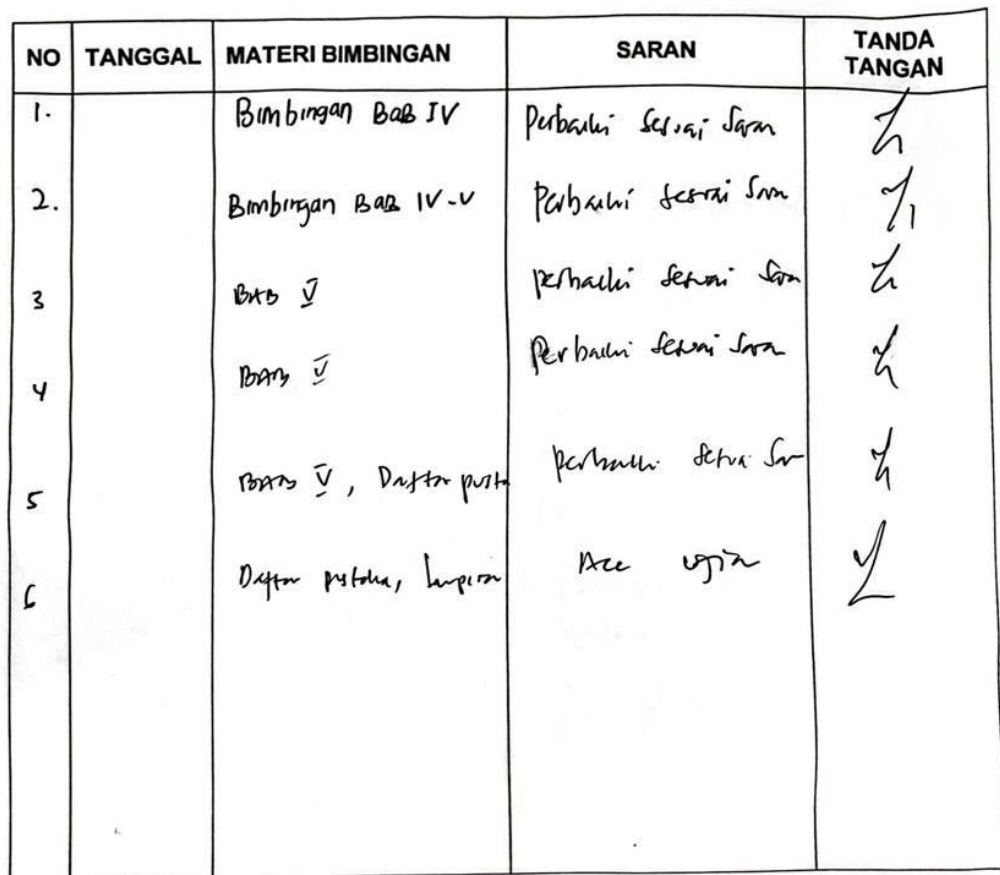 NO TANGGAL MATERI BIMBINGAN SARAN TANDA TANGAN
1. Bimbingan BAB IV Perbaiki Sesuai Saran
2. Bimbingan BAB IV-V Perbaiki Sesuai Saran
3 BAB V perbaiki Sesuai Saran
4 BAB V Perbaiki Sesuai Saran
5 BAB V, Daftar pusta perbaiki Sesuai Saran
6 Daftar pustaka, lampiran Acc ujian